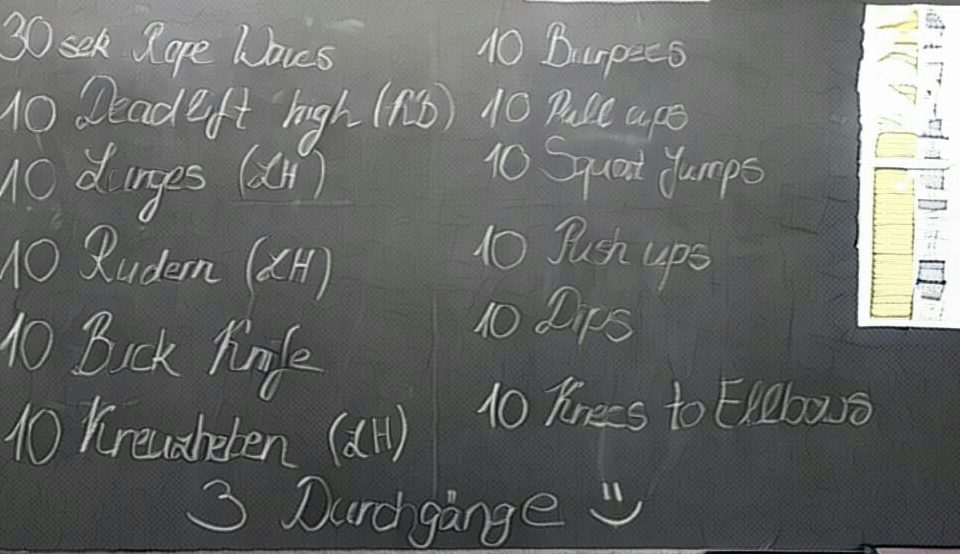 30 sek Rope Waves
10 Deadlift high (KB)
10 Lunges (LH)
10 Rudern (LH)
10 Buck Knife
10 Kreuzheben (LH)
10 Burpees
10 Pull ups
10 Squat Jumps
10 Push ups
10 Dips
10 Knees to Ellbows
3 Durchgänge